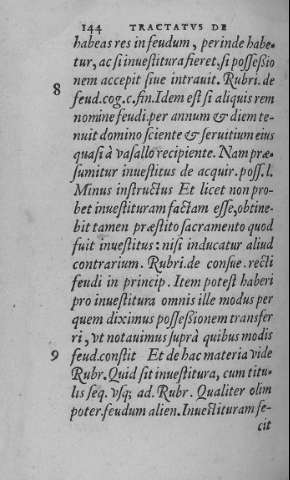 144 TRACTATVS DE
habeas res in feudum, perinde habe-
tur, ac si inuestitura fieret, si possessio
nem accepit siue intrauit. Rubri. de
8
feud. cog. c. fin. Idem est si aliquis rem
nomine feudi. per annum & diem te-
nuit domino sciente & seruitium eius
quasi à vasallo recipiente. Nam præ-
sumitur inuestitus de acquir. poss. l.
Minus instructus Et licet non pro-
bet inuestituram factam esse, obtine-
bit tamen præstito sacramento quod
fuit inuestitus: nisi inducatur aliud
contrarium. Rubri. de consue. recti
feudi in princip. Item potest haberi
pro inuestitura omnis ille modus per
quem diximus possessionem transfer
ri, vt notauimus suprà quibus modis
9 feud. constit Et de hac materia vide
Rubr. Quid sit inuestitura, cum titu-
lis seq. vsq; ad. Rubr. Qualiter olim
poter. feudum alien. Inuestituram fe-
cit